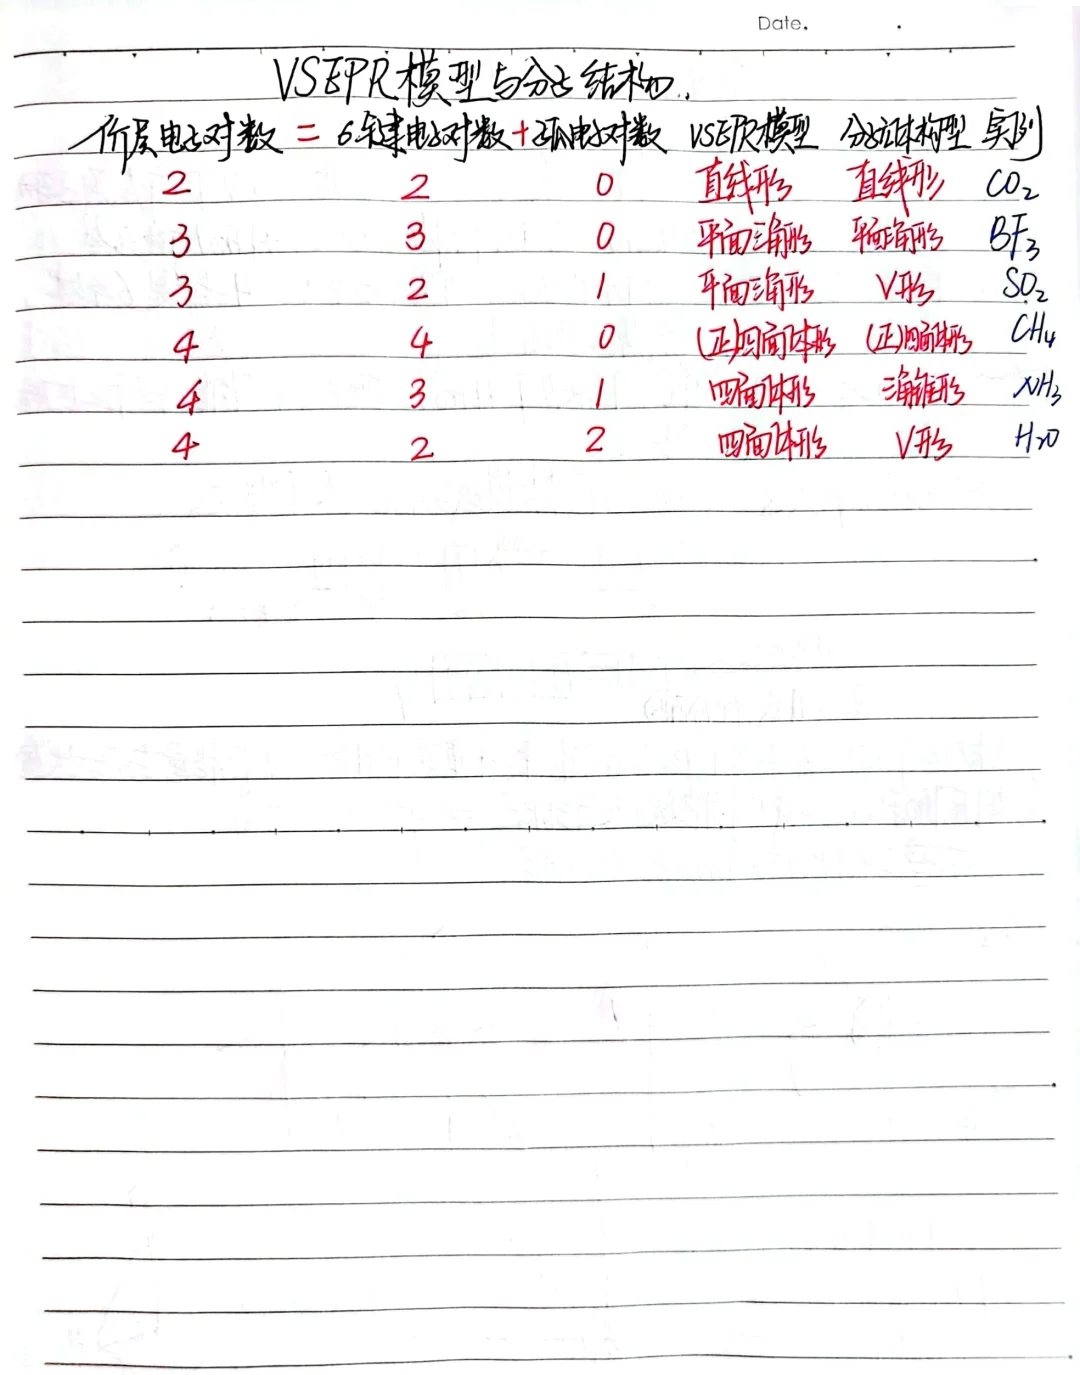 Date.
VSEPR模型与分子结构
价层电子对数 = σ键电子对数 + 孤电子对数 VSEPR模型 分子立体构型 实例
2 2 0 直线形 直线形 CO₂
3 3 0 平面三角形 平面三角形 BF₃
3 2 1 平面三角形 V形 SO₂
4 4 0 (正)四面体形 (正)四面体形 CH₄
4 3 1 四面体形 三角锥形 NH₃
4 2 2 四面体形 V形 H₂O